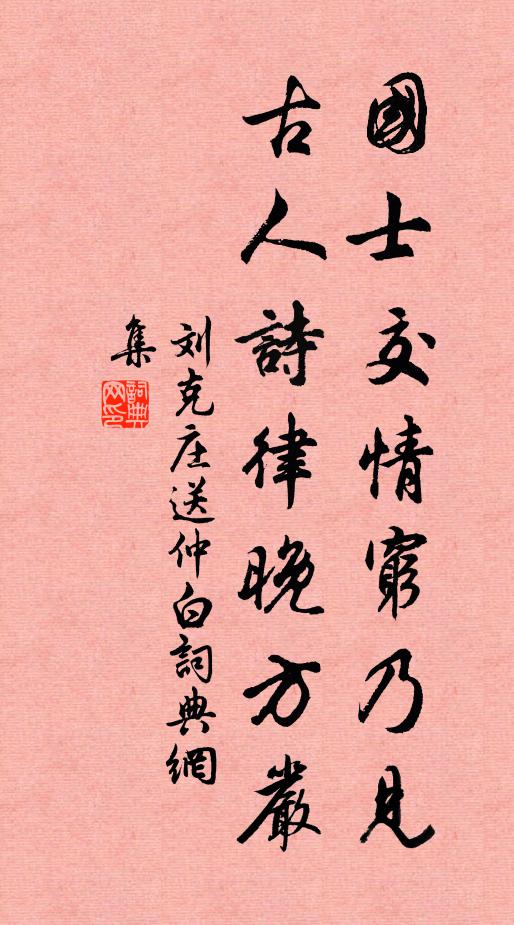 國士交情窮乃見
古人詩律晚方嚴
刘克庄送仲白詞典網
集
詞典
网印